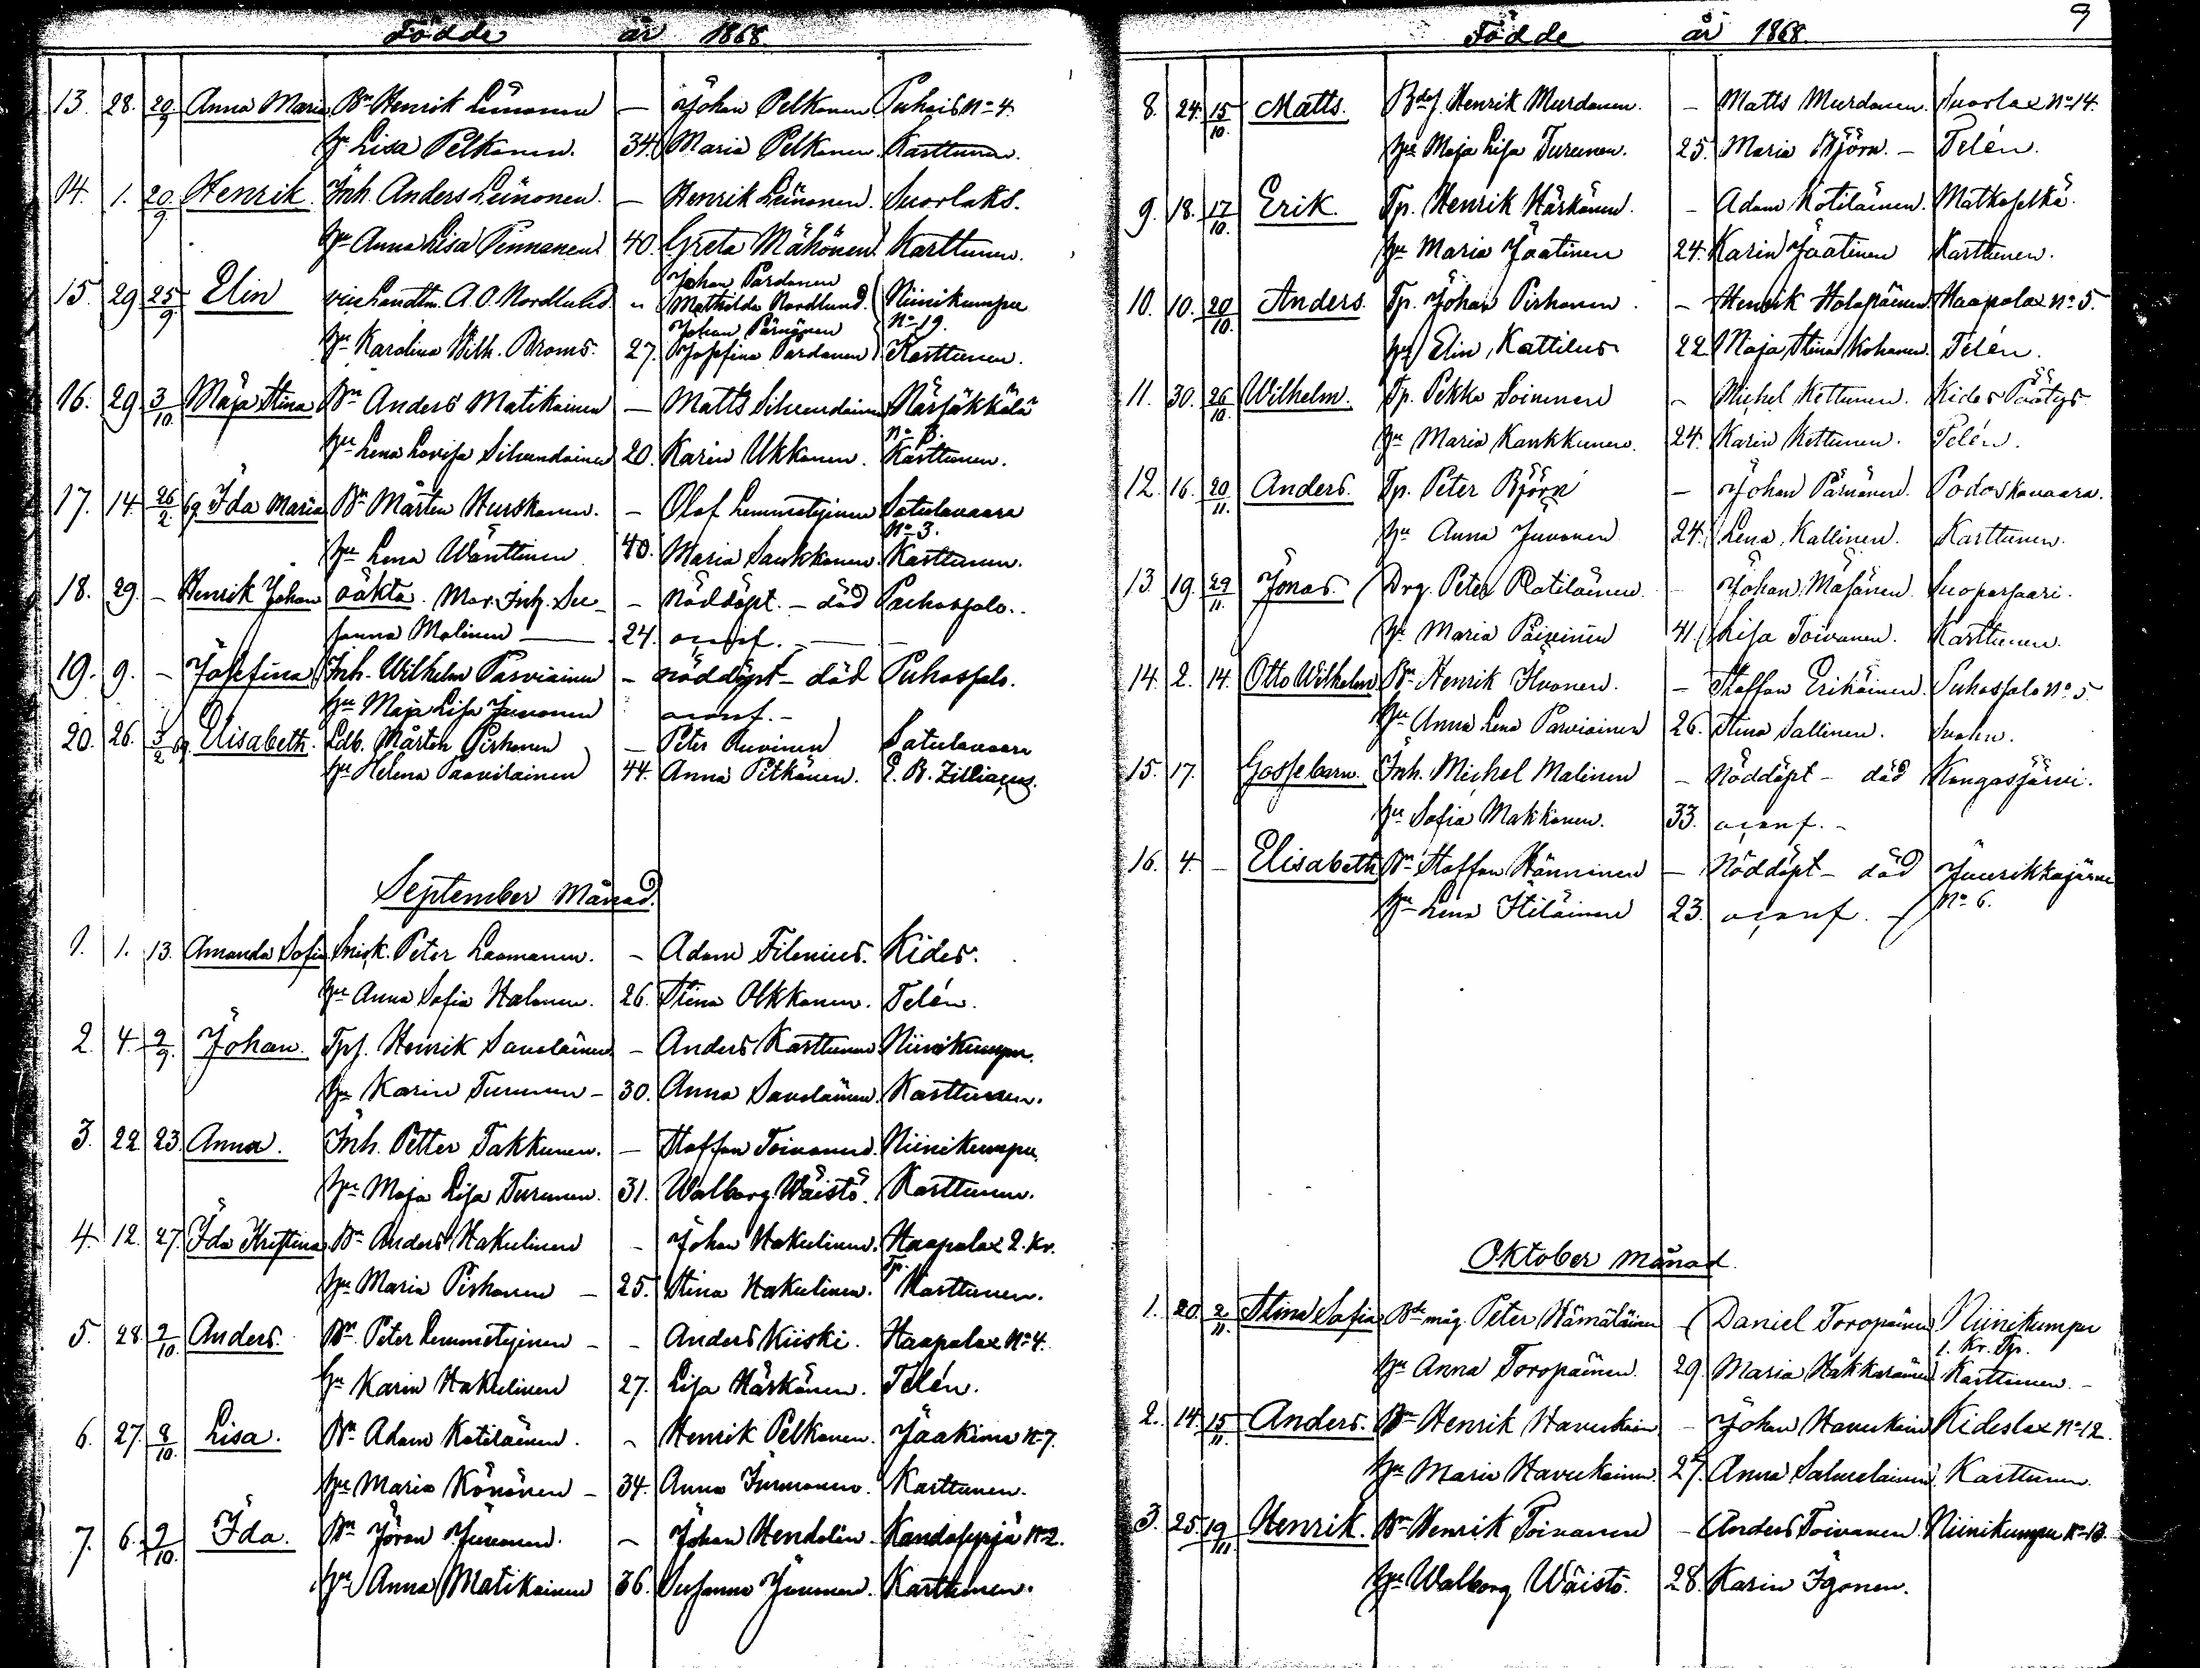 Födde år 1868.
13. 28. 20/9 Anna Maria Bn Henrik Leinonen — Johan Pelkonen Puhois No 4.
hu Lisa Pelkonen. 34. Maria Pelkonen. Karttunen.
14. 1. 20/9 Henrik. Inh. Anders Leinonen. — Henrik Leinonen. Suorlaks.
hu Anna Lisa Pennanen 40. Greta Mähönen Karttunen.
Johan Pardanen
15. 29 25/9 Elin A. O. Nordlund " Mathilda Nordlund. Niinikumpu
Johan Pärnänen No 19.
hu Karolina Wilh. Broms. 27. Josefina Pardanen Karttunen.
16. 29 3/10. Maja Stina Bn Anders Matikainen — Matts Närsäkkälä
hu Lena Lovisa 20. Karin Ukkonen. Karttunen.
17. 14. 26/2. 69 Ida Maria Bn Mårten Hurskanen. - Olof Lemmetyinen Satulavaara
No 3.
hu Lena Wänttinen 40. Maria Saukkonen. Karttunen.
18. 29. - Henrik Johan oäkta. Mor. Inh. Su- - Nöddöpt. - död Puhossalo.
sanna Malinen — 24. —
19. 9. - Josefina Inh. Wilhelm Parviainen - nöddöpt - död Puhossalo.
hu Maja Lisa Juvonen
20. 26. 3/2 69. Elisabeth. Ldb. Mårten Pirhonen — Peter Ruvinen Satulavaara
hu Helena Paavilainen 44. Anna Pitkänen. E. R. Zilliacus.
September Månad.
1. 1. 13. Amanda Sofia Snick. Peter Laamanen. - Adam Filenius. Kides.
hu Anna Sofia Halonen. 26. Stina Olkkonen. Telén.
2. 4. 9/9. Johan. Tps. Henrik Savolainen - Anders Karttunen Niinikumpu.
hu Karin Turunen - 30. Anna Savolainen. Karttunen.
3. 22 23. Anna. Inh. Petter Takkunen. — Staffan Toivanen. Niinikumpu.
hu Maja Lisa Turunen. 31. Walborg Wäistö. Karttunen.
4. 12. 27. Ida Kristina Bn Anders Hakulinen - Johan Hakulinen. Haapalax 2. Kr.
Tp.
hu Maria Pirhonen — 25. Stina Hakulinen. Karttunen.
5. 28. 2/10 Anders. Bn Peter Lemmetyinen - - Anders Kiiski. Haapalax No 4.
hu Karin Hakulinen 27. Lisa Härkönen. Telén.
6. 27. 8/10. Lisa. Bn Adam Kotilainen. - Henrik Pelkonen. Jaakima No 7.
hu Maria Könönen - 34. Anna Karttunen.
7. 6. 9/10. Ida. Bn Jöran Juvonen. - Johan Hendolin. No 2.
hu Anna Matikainen 36. Susanna Karttunen.
9
Födde år 1868.
8. 24. 15/10. Matts. Henrik Murdonen. - Matts Murdonen. Suorlax No 14.
hu Maja Lisa Turunen. 25. Maria Björn. - Telén.
9. 18. 17/10. Erik. Tp. Henrik Härkönen. - Adam Kotilainen. Matkaselkä.
hu Maria Jaatinen 24. Karin Jaatinen Karttunen.
10. 10. 20/10. Anders. Tp. Johan Pirhonen. - Henrik Holopainen Haapalax No 5.
hu Elin Kattilus 22. Maja Stina Kohonen. Telén.
11. 30. 26/10. Wilhelm. Tp. Pekka Soininen - Michel Kettunen. Kides
hu Maria Kankkunen. 24. Karin Kettunen. Telén.
12. 16. 20/11. Anders. Tp. Peter Björn - Johan Pärnänen. Podoskavaara.
hu Anna Juvonen 24. Lena Kallinen. Karttunen.
13. 19. 29/11. Jonas. Drg. Peter Kotilainen. - Johan Suoparsaari.
hu Maria Päivinen 41. Lisa Toivanen. Karttunen.
14. 2. 14. Otto Wilhelm Bn Henrik Ikonen. - Staffan Erikäinen. Puhossalo No 5
hu Anna Lena Parviainen 26. Stina Sallinen.
15. 17. Gossebarn. Inh. Michel Malinen - Nöddöpt - död Kangasjärvi.
hu Sofia Makkonen. 33.
16. 4. - Elisabeth Bn Staffan Hänninen — Nöddöpt - död Juurikkajärvi
No 6.
hu Lena Itiläinen 23.
Oktober Månad.
1. 20. 2/11. Stina Sofia Bde måg. Peter Hämäläinen - Daniel Toropainen Niinikumpu
1. Kr. Tp.
hu Anna Toropainen. 29. Maria Hakkarainen Karttunen. -
2. 14. 15/11. Anders. Bn Henrik Havukain - Johan Havukain Kideslax No 12.
hu Maria Havukainen. 27. Anna Karttunen.
3. 25. 19/11. Henrik. Bn Henrik Toivanen - Anders Toivanen. Niinikumpu No 13.
hu Walborg Wäistö. 28. Karin Igonen.